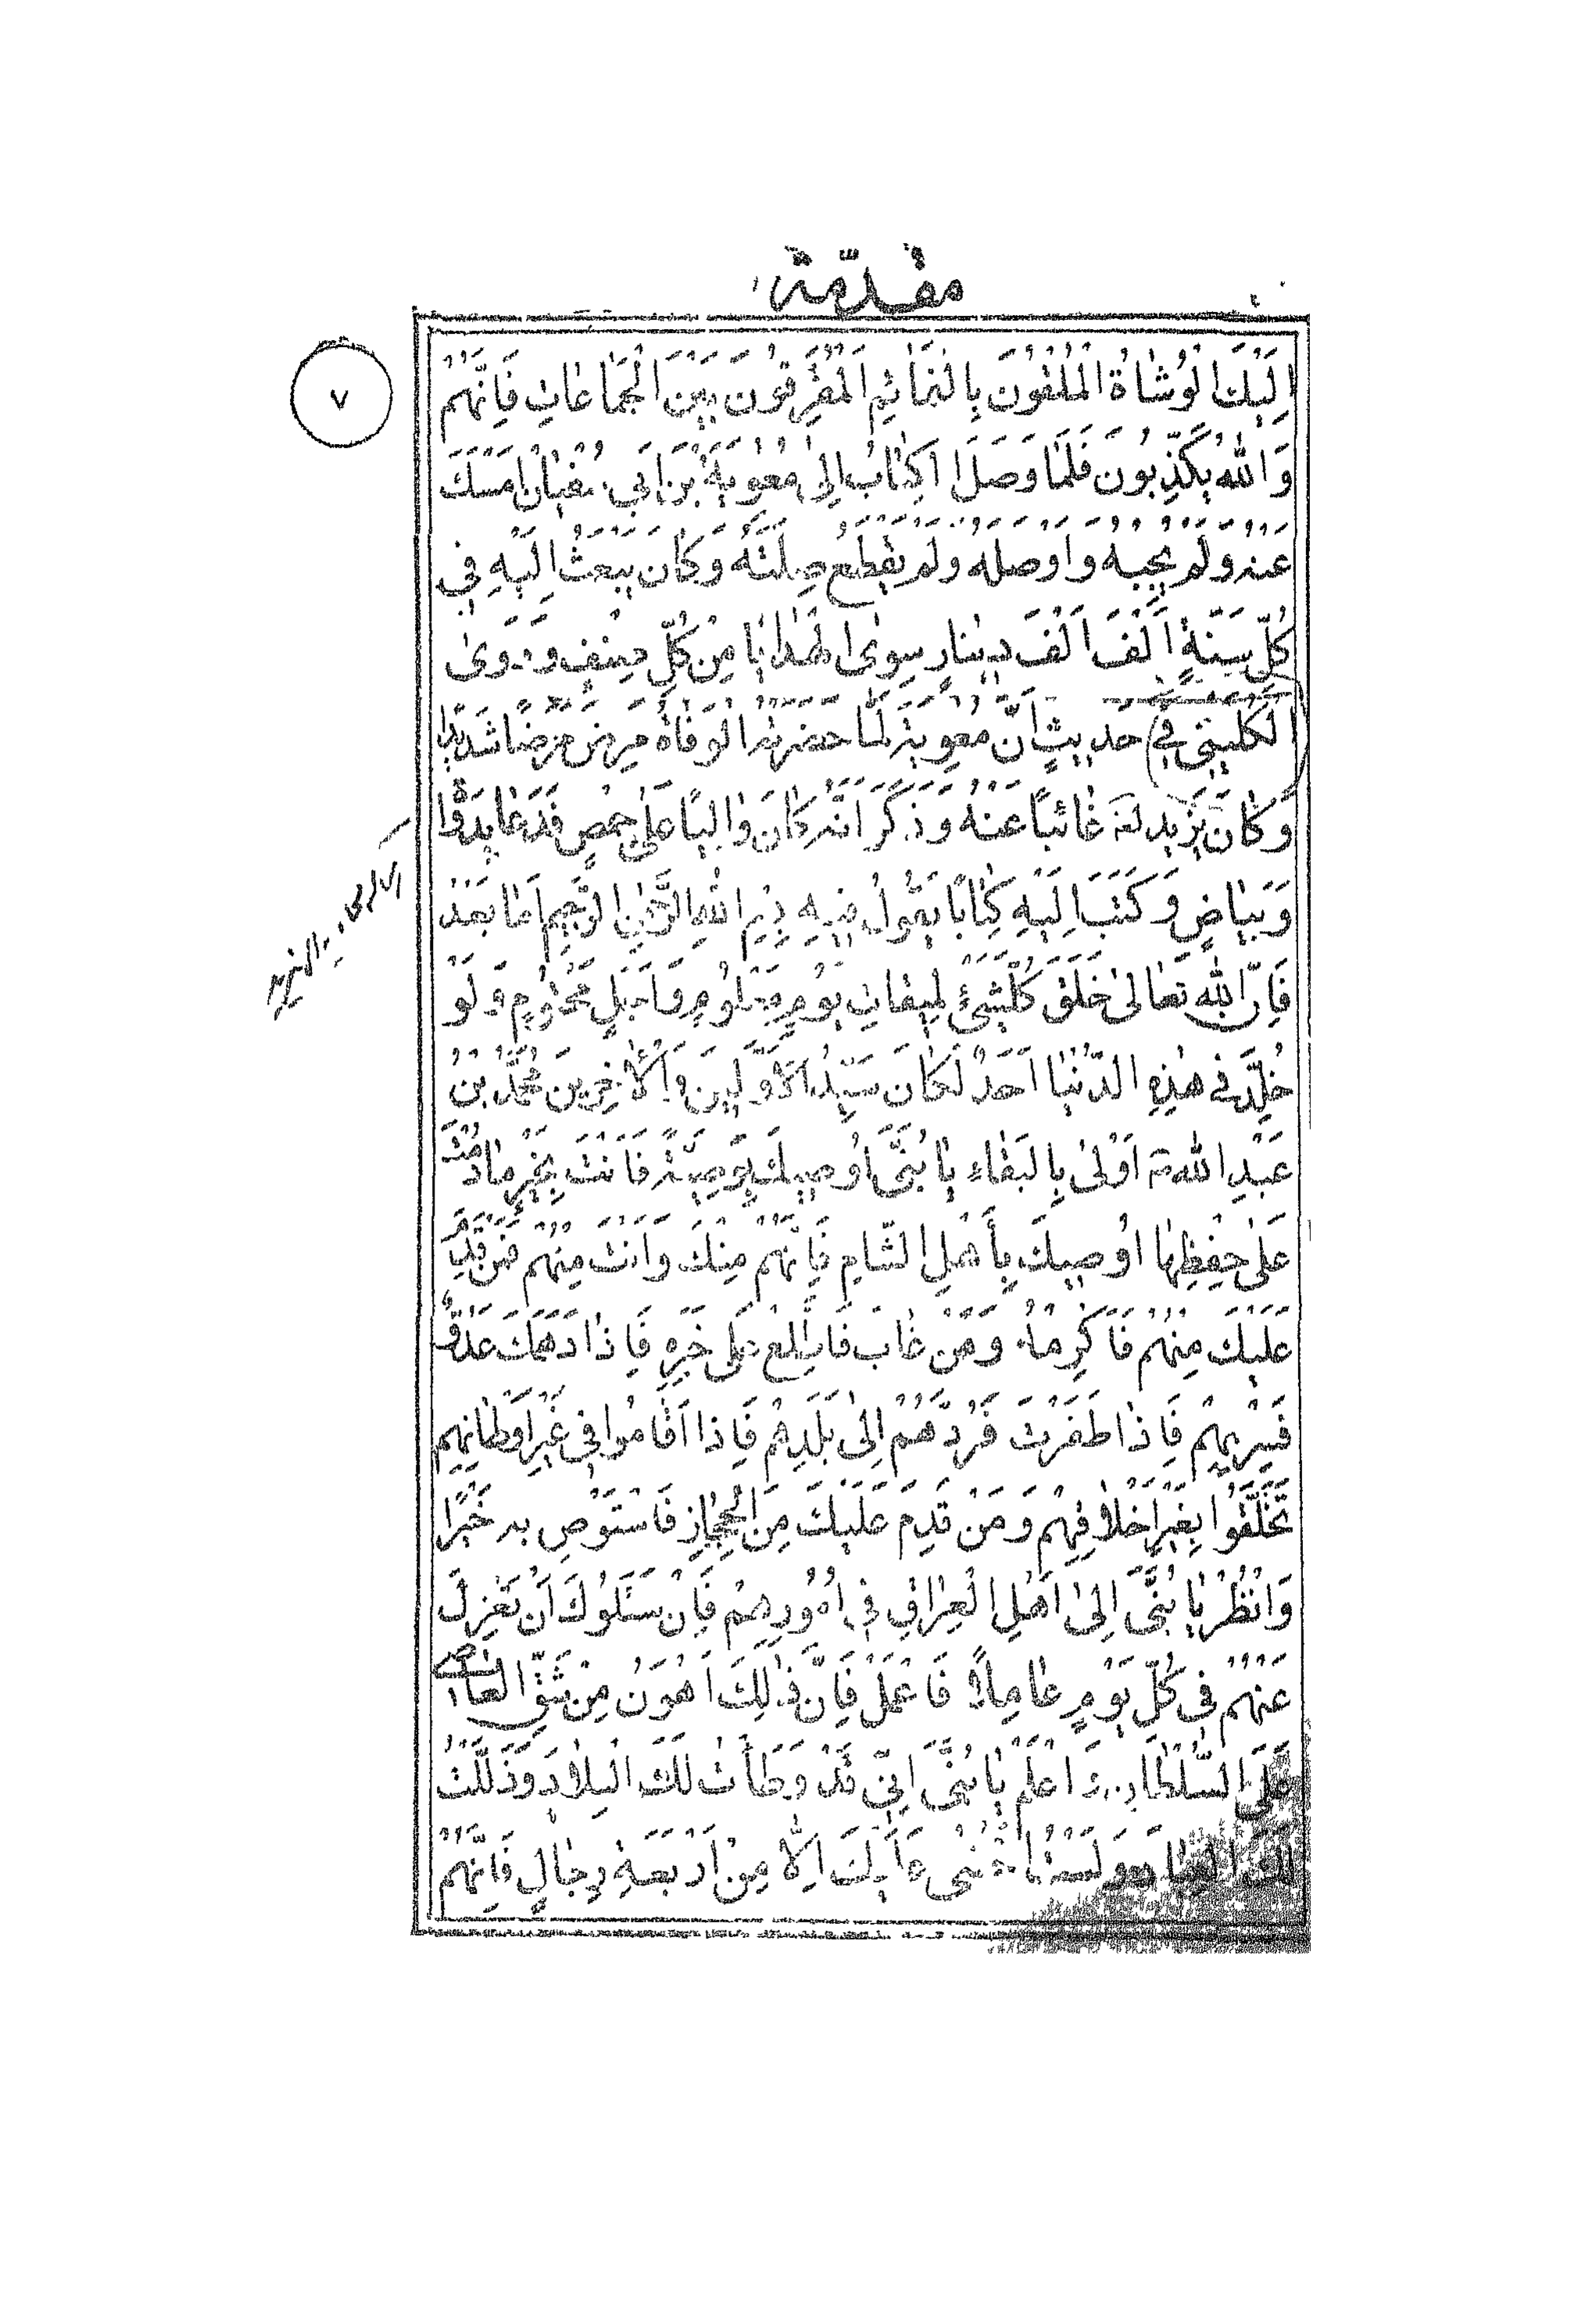 مقدّمة
٧
اِلَيْكَ الْوُشاةُ الْمُلْقُونَ بِالنَّمائِمِ اَلْمُفَرِّقُونَ بَيْنَ الْجَماعاتِ فَاِنَّهُمْ
وَاللهُ يُكَذِّبُونَ فَلَمّا وَصَلَ اكِتابُ اِلىٰ مُعٰوِيَةَ بْنِ اَبي سُفْيانَ اَمْسَكَ
عَنْهُ وَلَمْ يُجِبْهُ وَاَوْصَلَهُ وَلَمْ يَقْطَعْ صِلَتَهُ وَكانَ يَبْعَثُ اِلَيْهِ في
كُلِّ سَنَةٍ اَلْفَ اَلْفَ دينارٍ سِوىٰ الْهَدايا مِنْ كُلِّ صِنْفٍ وَرَوىٰ
الكلينى في حَديثٍ اَنَّ مُعٰوِيَةَ لَمّا حَضَرَتْهُ الْوَفاةُ مَرِضَ مَرَضًا شَديدًا
وَكانَ يَزيد لعنه غائِباً عَنْهُ وَذَكَرَ اَنَّهُ كانَ والِيًا عَلىٰ حِمْصٍ فَدَعا بِدَواةٍ
وَبَياضٍ وَكَتَبَ اِلَيْهِ كِتابًا يَقُولُ فيهِ بِسْمِ اللهِ الرَّحْمٰنِ الرَّحيمِ اَمّا بَعْدُ
فَاِنَّ اللهَ تَعالىٰ خَلَقَ كُلَّشَيْءٍ لِميقاتِ يَوْمٍ مَعْلُومٍ وَاَجَلٍ مَحْتُومٍ وَلَوْ
خُلِّدَ في هٰذِهِ الدُّنْيا اَحَدٌ لَكانَ سَيِّدُ الْاَوَّلينَ وَالْاٰخِرينَ مُحَمَّدُ بْنُ
عَبْدِ اللهِ ص اَوْلىٰ بِالْبَقاءِ يا بُنَيَّ اُوصيكَ بِوَصِيَّةٍ فَاَنْتَ بِخَيْرٍ ما دُمْتَ
عَلىٰ حِفْظِها اُوصيكَ بِأَهْلِ الشّامِ فَاِنَّهُمْ مِنْكَ وَاَنْتَ مِنْهُمْ فَمَنْ قَدِمَ
عَلَيْكَ مِنْهُمْ فَاَكْرِمْهُ وَمَنْ غابَ فَاطَّلِعْ عَلىٰ خَبَرِهِ فَاِذا دَهَمَكَ عَدُوٌّ
فَسِرْ بِهِمْ فَاِذا ظَفَرْتَ فَرُدَّهُمْ اِلىٰ بَلَدِهِمْ فَاِذا اَقامُوا في غَيْرِ اَوْطانِهِمْ
تَخَلَّقُوا بِغَيْرِ اَخْلاقِهِمْ وَمَنْ قَدِمَ عَلَيْكَ مِنَ الْحِجازِ فَاسْتَوْصِ بِهِ خَيْرًا
وَانْظُرْ يا بُنَيَّ اِلىٰ اَهْلِ الْعِراقِ في اُمُورِهِمْ فَاِنْ سَئَلُوكَ اَنْ تَعْزِلَ
عَنْهُمْ في كُلِّ يَوْمٍ عامِلاً فَاعْمَلْ فَاِنَّ ذٰلِكَ اَهْوَنُ مِنْ شَقِّ الْعَصا
عَلَى السُّلْطانِ وَاعْلَمْ يا بُنَيَّ اِنّي قَدْ وَطَأْتُ لَكَ الْبِلادَ وَذَلَّلْتُ
لَكَ وَلَسْتُ عَلَيْكَ اِلّا مِنْ اَرْبَعَةِ رِجالٍ فَاِنَّهُمْ